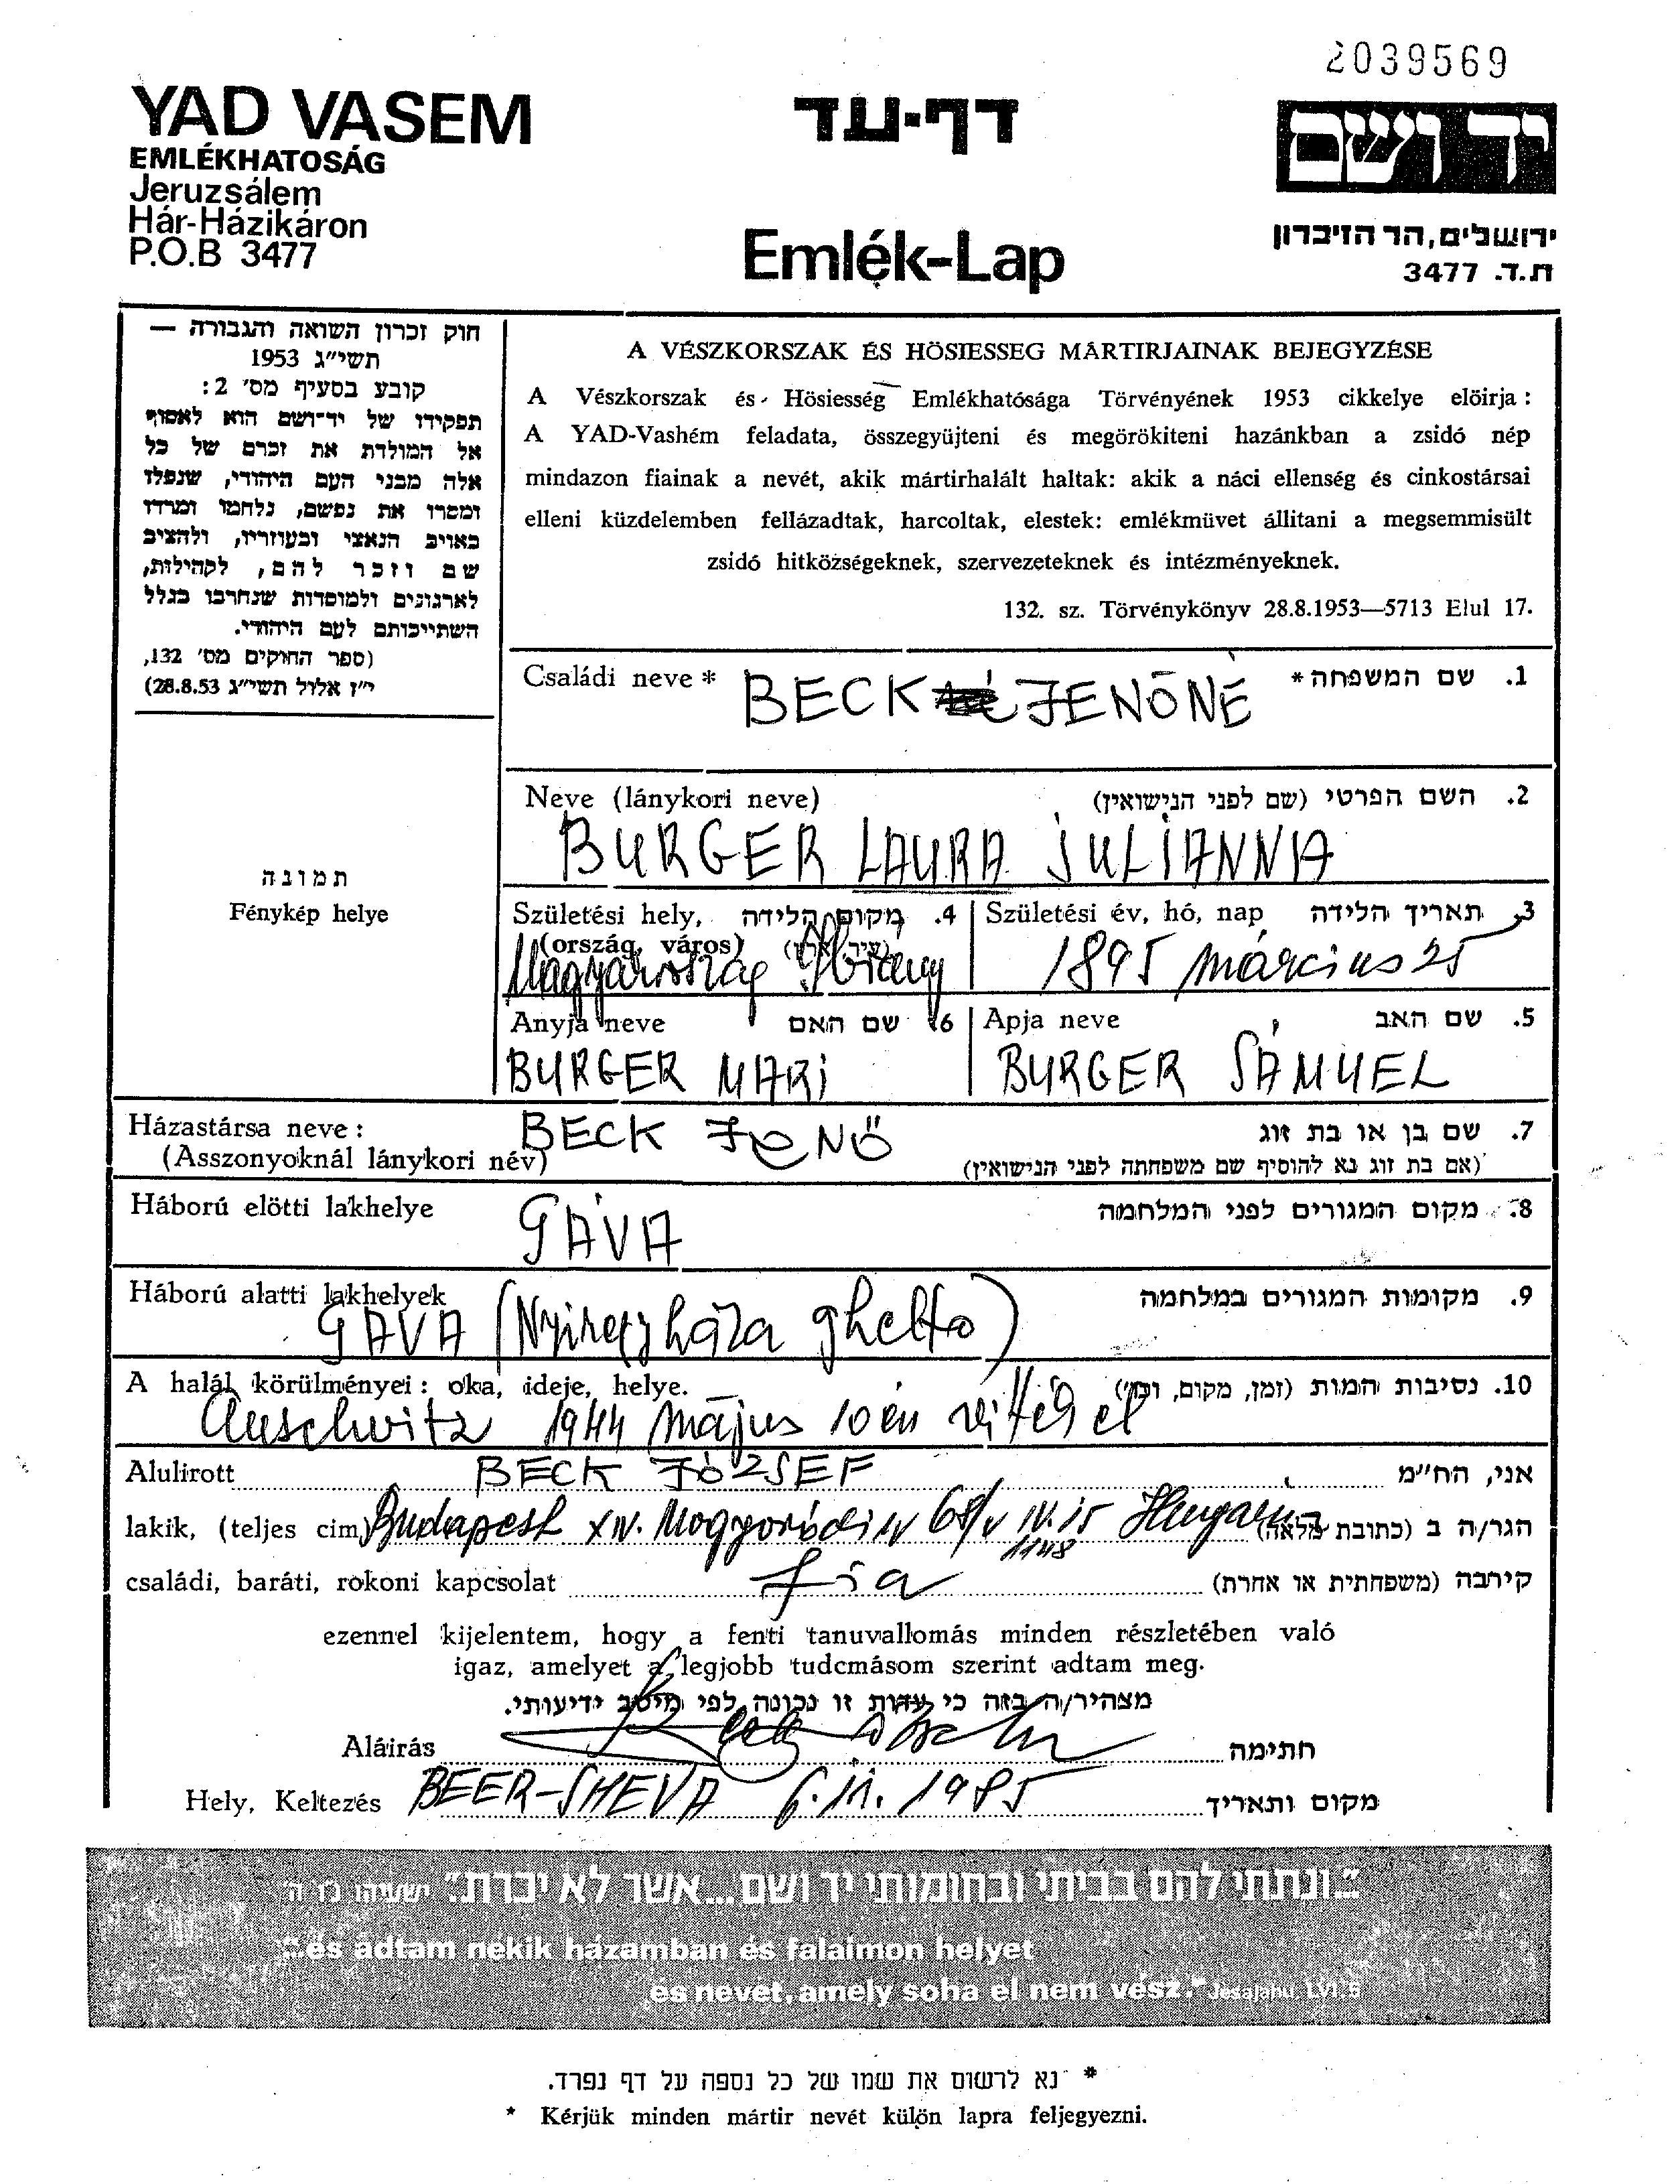 2039569
YAD VASEM
EMLÉKHATOSÁG
Jeruzsálem
Hár-Házikáron
P.O.B 3477
דף-עד
Emlék-Lap
יד ושם
ירושלים, הר הזיכרון
ת.ד. 3477
חוק זכרון השואה והגבורה —
תשי"ג 1953
קובע בסעיף מס' 2:
תפקידו של יד-ושם הוא לאסוף
אל המולדת את זכרם של כל
אלה מבני העם היהודי, שנפלו
ומסרו את נפשם, נלחמו ומרדו
באויב הנאצי ובעוזריו, ולהציב
שם וזכר להם, לקהילות,
לארגונים ולמוסדות שנחרבו בגלל
השתייכותם לעם היהודי.
(ספר החוקים מס' 132,
י"ז אלול תשי"ג 28.8.53)
A VÉSZKORSZAK ÉS HÖSIESSEG MÁRTIRJAINAK BEJEGYZÉSE
A Vészkorszak és Hösiesség Emlékhatósága Törvényének 1953 cikkelye elöirja:
A YAD-Vashém feladata, összegyüjteni és megörökiteni hazánkban a zsidó nép
mindazon fiainak a nevét, akik mártirhalált haltak: akik a náci ellenség és cinkostársai
elleni küzdelemben fellázadtak, harcoltak, elestek: emlékmüvet állitani a megsemmisült
zsidó hitközségeknek, szervezeteknek és intézményeknek.
132. sz. Törvénykönyv 28.8.1953—5713 Elul 17.
Családi neve * BECK JENŐNÉ 1. שם המשפחה*
Neve (lánykori neve) 2. השם הפרטי (שם לפני הנישואין)
BURGER LAURA JULIANNA
תמונה
Fénykép helye
Születési hely, 4. מקום הלידה
(ország, város)
Magyarország Ibrány
Születési év, hó, nap 3 תאריך הלידה
1895 március 25
Anyja neve 6 שם האם
BURGER MARI
Apja neve 5. שם האב
BURGER SÁMUEL
Házastársa neve: BECK JENŐ 7. שם בן או בת זוג
(Asszonyoknál lánykori név) (אם בת זוג נא להוסיף שם משפחתה לפני הנישואין)
Háború elötti lakhelye GÁVA 8. מקום המגורים לפני המלחמה
Háború alatti lakhelyek 9. מקומות המגורים במלחמה
GÁVA (Nyiregyháza ghetto)
A halál körülményei: oka, ideje, helye. 10. נסיבות המות (זמן, מקום, וכו')
Auschwitz 1944 május 10 én vitték el
Alulirott BECK JÓZSEF אני, הח"מ
lakik, (teljes cim) Budapest XIV. Mogyoródi 68/v IV. 15 Hungaria הגר/ה ב (כתובת מלאה)
1148
családi, baráti, rokoni kapcsolat fia קירבה (משפחתית או אחרת)
ezennel kijelentem, hogy a fenti tanuvallomás minden részletében való
igaz, amelyet a legjobb tudcmásom szerint adtam meg.
מצהיר/ה בזה כי עדות זו נכונה לפי מיטב ידיעותי.
Aláirás חתימה
Hely, Keltezés BEER-SHEVA 6. 11. 1985 מקום ותאריך
"...ונתתי להם בביתי ובחומותי יד ושם... אשר לא יכרת" ישעיהו נ"ו ה'
"...és adtam nekik házamban és falaimon helyet
és nevet, amely soha el nem vész." Jesajahu, LVI, 5
* נא לרשום את שמו של כל נספה על דף נפרד.
* Kérjük minden mártir nevét külön lapra feljegyezni.